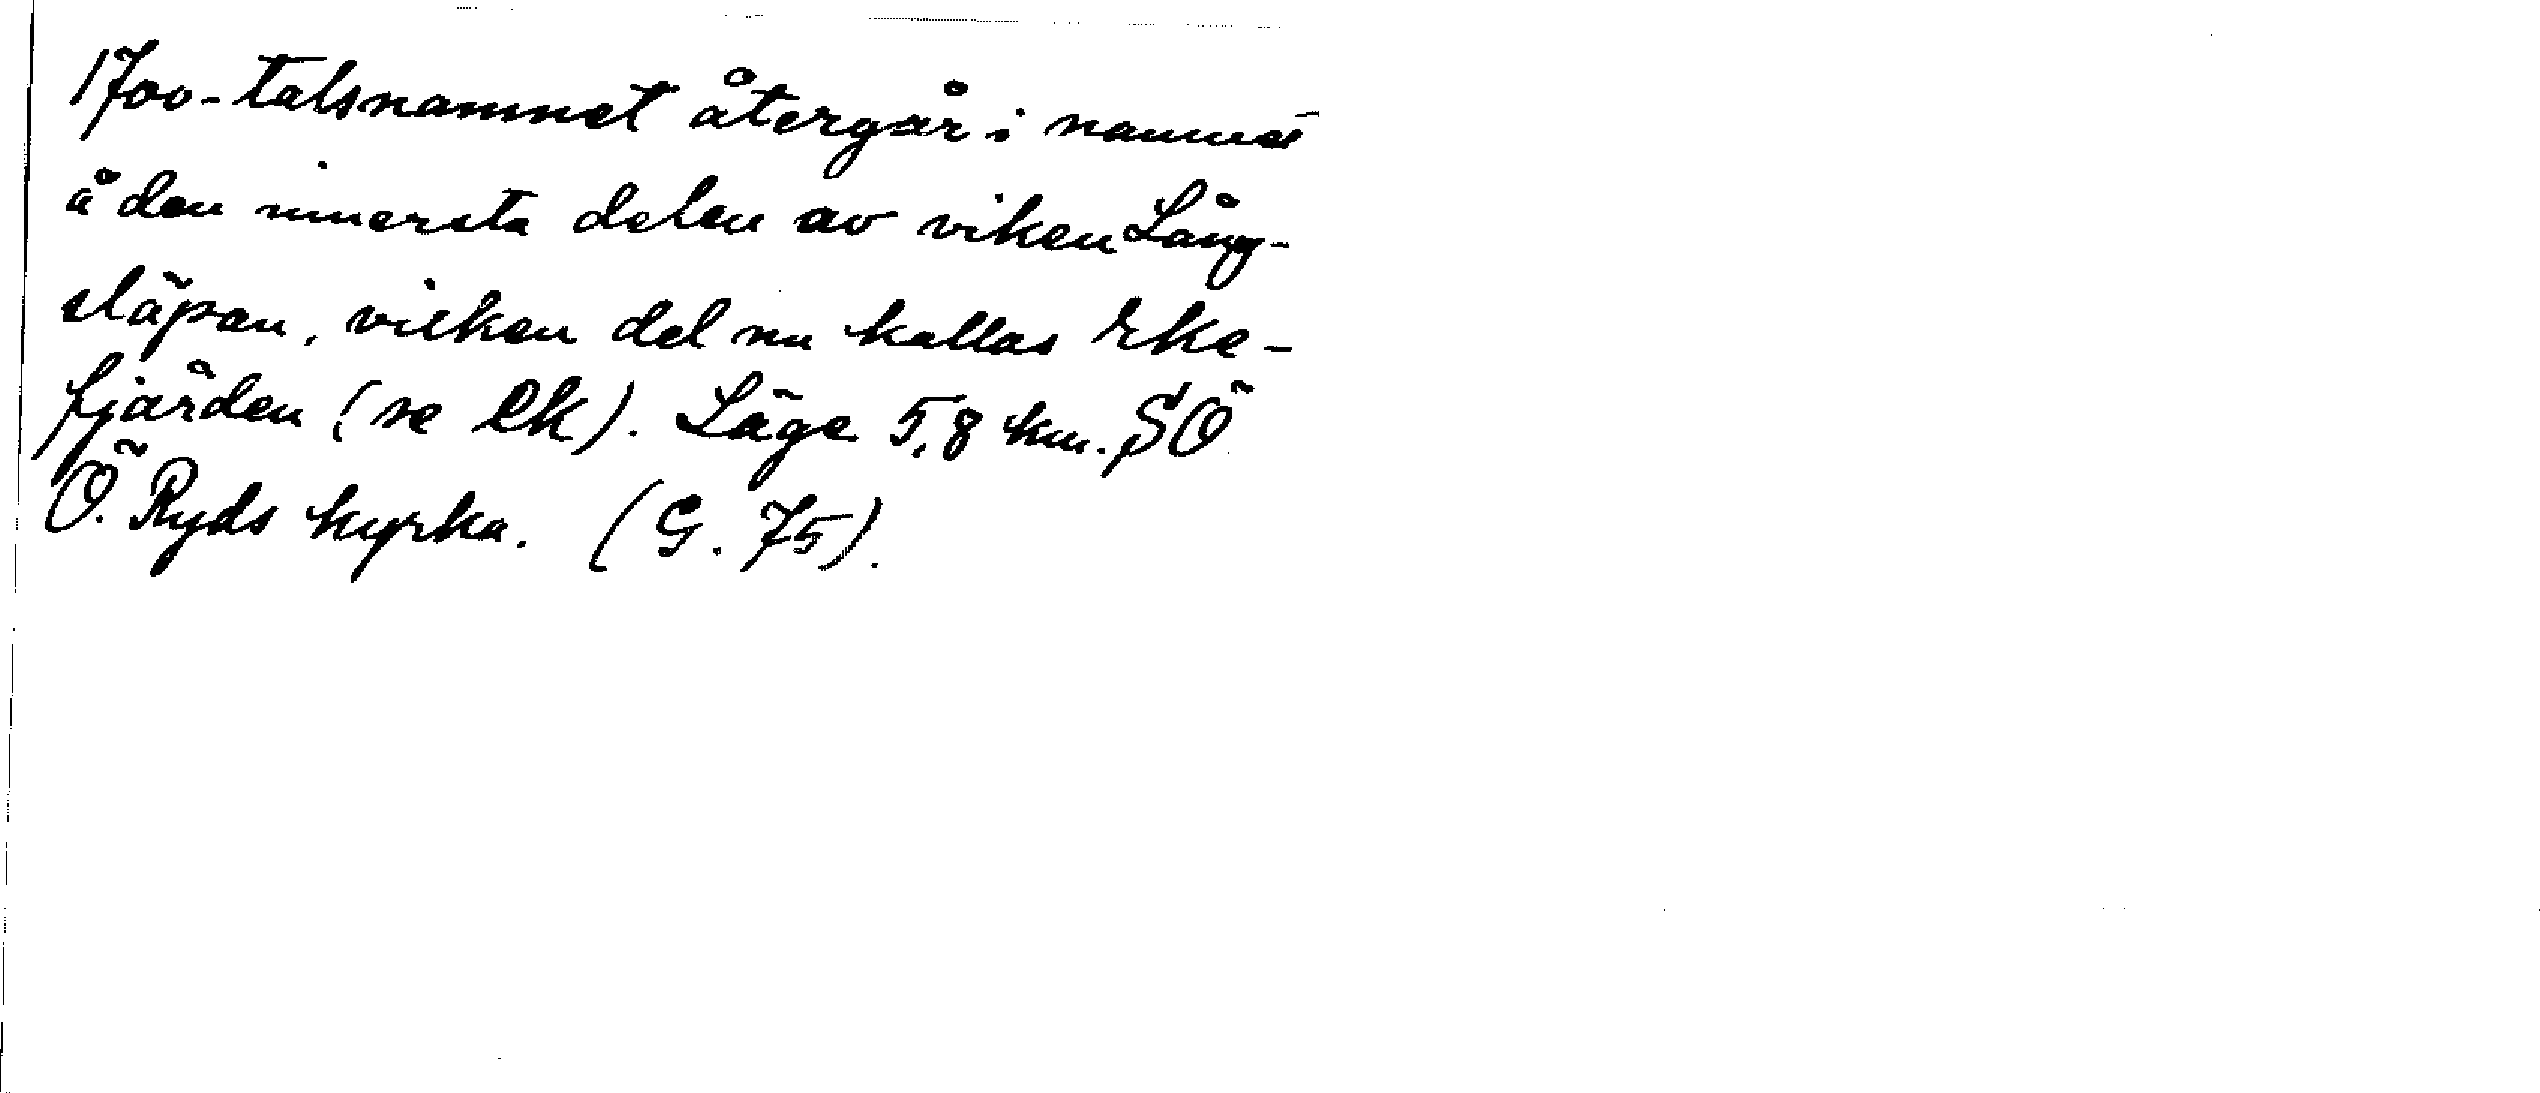 1700-talsnamnet återgår i namnet
å den innersta delen av viken Lång-
släpan, vilken del nu kallas Eke-
fjärden (se Ek). Läge 5,8 km. SÖ
Ö. Ryds kyrka. (G. 75).